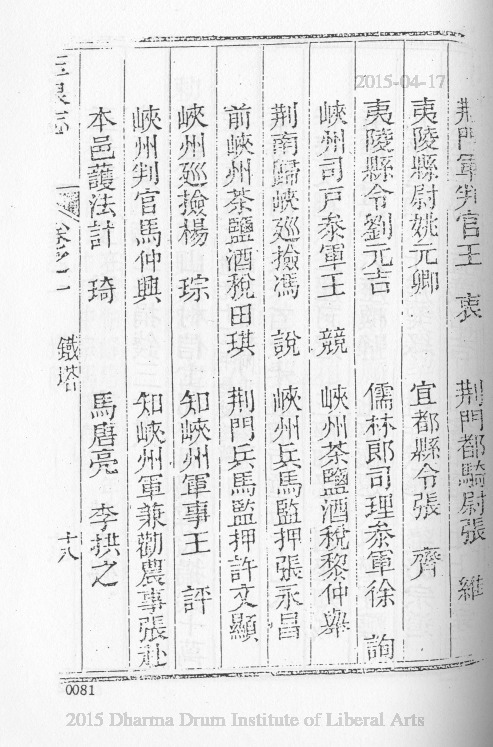 荆門軍判官王 衷 荆門都騎尉張 維
夷陵縣尉姚元卿 宜都縣令張 齊
夷陵縣令劉元吉 儒林郎司理叅軍徐 詢
峽州司戸叅軍王 競 峽州茶鹽酒稅黎仲舉
荆南歸峽廵撿馮 說 峽州兵馬監押張永昌
前峽州茶鹽酒稅田琪 荆門兵馬監押許文顯
峽州廵撿楊 琮 知峽州軍事王 評
峽州判官馬仲興 知峽州軍兼勸農事張赴
本邑護法計 琦 馬唐亮 李拱之
玉泉志 卷之一 鐵塔 十八
2015-04-17
0081
2015 Dharma Drum Institute of Liberal Arts